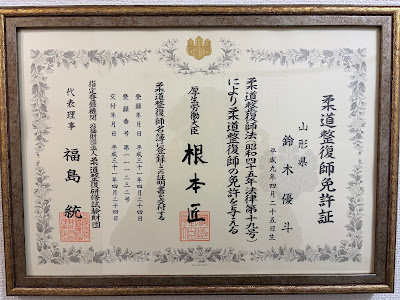 柔道整復師免許証
山形県
鈴木優斗
平成九年四月二十五日生
柔道整復師法(昭和四十五年法律第十九号)
により柔道整復師の免許を与える
厚生労働大臣 根本匠
柔道整復師名簿に登録し、この証明書を交付する
登録年月日 平成三十一年四月二十四日
交付年月日 平成三十一年四月二十四日
指定登録機関 公益財団法人 柔道整復研修試験財団
代表理事 福島統